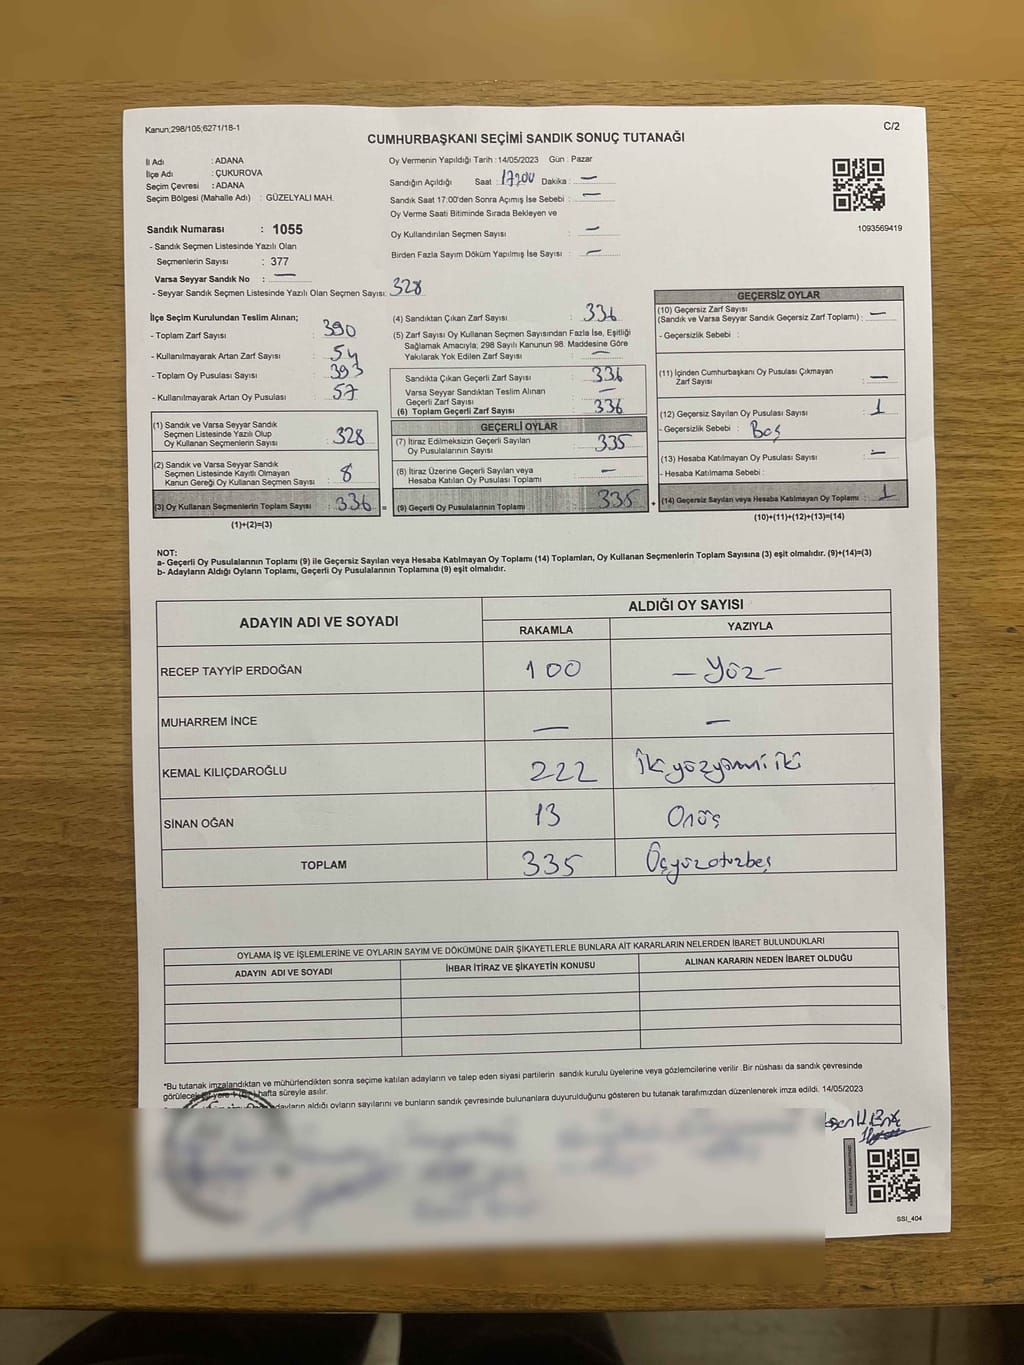 Kanun;298/105;6271/18-1
C/2
CUMHURBAŞKANI SEÇİMİ SANDIK SONUÇ TUTANAĞI
İl Adı : ADANA
İlçe Adı : ÇUKUROVA
Seçim Çevresi : ADANA
Seçim Bölgesi (Mahalle Adı) : GÜZELYALI MAH.
Sandık Numarası : 1055
- Sandık Seçmen Listesinde Yazılı Olan
Seçmenlerin Sayısı : 377
Varsa Seyyar Sandık No : —
- Seyyar Sandık Seçmen Listesinde Yazılı Olan Seçmen Sayısı: 328
Oy Vermenin Yapıldığı Tarih :14/05/2023 Gün : Pazar
Sandığın Açıldığı Saat : Dakika : —
Sandık Saat 17:00'den Sonra Açımış İse Sebebi : —
Oy Verme Saati Bitiminde Sırada Bekleyen ve
Oy Kullandırılan Seçmen Sayısı : —
Birden Fazla Sayım Döküm Yapılmış İse Sayısı : —
1093569419
İlçe Seçim Kurulundan Teslim Alınan;
- Toplam Zarf Sayısı : 390
- Kullanılmayarak Artan Zarf Sayısı : 54
- Toplam Oy Pusulası Sayısı : 393
- Kullanılmayarak Artan Oy Pusulası : 57
(1) Sandık ve Varsa Seyyar Sandık
Seçmen Listesinde Yazılı Olup
Oy Kullanan Seçmenlerin Sayısı : 328
(2) Sandık ve Varsa Seyyar Sandık
Seçmen Listesinde Kayıtlı Olmayan
Kanun Gereği Oy Kullanan Seçmen Sayısı : 8
(3) Oy Kullanan Seçmenlerin Toplam Sayısı : 336 =
(1)+(2)=(3)
(4) Sandıktan Çıkan Zarf Sayısı : 336
(5) Zarf Sayısı Oy Kullanan Seçmen Sayısından Fazla İse, Eşitliği
Sağlamak Amacıyla; 298 Sayılı Kanunun 98. Maddesine Göre
Yakılarak Yok Edilen Zarf Sayısı : —
Sandıkta Çıkan Geçerli Zarf Sayısı : 336
Varsa Seyyar Sandıktan Teslim Alınan
Geçerli Zarf Sayısı : —
(6) Toplam Geçerli Zarf Sayısı : 336
GEÇERLİ OYLAR
(7) İtiraz Edilmeksizin Geçerli Sayılan
Oy Pusulalarının Sayısı : 335
(8) İtiraz Üzerine Geçerli Sayılan veya
Hesaba Katılan Oy Pusulası Toplamı : —
(9) Geçerli Oy Pusulalarının Toplamı : 335 +
GEÇERSİZ OYLAR
(10) Geçersiz Zarf Sayısı
(Sandık ve Varsa Seyyar Sandık Geçersiz Zarf Toplamı) : —
- Geçersizlik Sebebi :
(11) İçinden Cumhurbaşkanı Oy Pusulası Çıkmayan
Zarf Sayısı : —
(12) Geçersiz Sayılan Oy Pusulası Sayısı : 1
- Geçersizlik Sebebi : Boş
(13) Hesaba Katılmayan Oy Pusulası Sayısı : —
- Hesaba Katılmama Sebebi :
(14) Geçersiz Sayılan veya Hesaba Katılmayan Oy Toplamı : 1
(10)+(11)+(12)+(13)=(14)
NOT:
a- Geçerli Oy Pusulalarının Toplamı (9) ile Geçersiz Sayılan veya Hesaba Katılmayan Oy Toplamı (14) Toplamları, Oy Kullanan Seçmenlerin Toplam Sayısına (3) eşit olmalıdır. (9)+(14)=(3)
b- Adayların Aldığı Oyların Toplamı, Geçerli Oy Pusulalarının Toplamına (9) eşit olmalıdır.
ADAYIN ADI VE SOYADI ALDIĞI OY SAYISI
RAKAMLA YAZIYLA
RECEP TAYYİP ERDOĞAN 100 — Yüz —
MUHARREM İNCE — —
KEMAL KILIÇDAROĞLU 222 İkiyüzyirmi iki
SİNAN OĞAN 13 Onüç
TOPLAM 335 Üçyüzotuzbeş
OYLAMA İŞ VE İŞLEMLERİNE VE OYLARIN SAYIM VE DÖKÜMÜNE DAİR ŞİKAYETLERLE BUNLARA AİT KARARLARIN NELERDEN İBARET BULUNDUKLARI
ADAYIN ADI VE SOYADI İHBAR İTİRAZ VE ŞİKAYETİN KONUSU ALINAN KARARIN NEDEN İBARET OLDUĞU
*Bu tutanak imzalandıktan ve mühürlendikten sonra seçime katılan adayların ve talep eden siyasi partilerin sandık kurulu üyelerine veya gözlemcilerine verilir. Bir nüshası da sandık çevresinde
görülecek bir yere hafta süreyle asılır.
adayların aldığı oyların sayılarını ve bunların sandık çevresinde bulunanlara duyurulduğunu gösteren bu tutanak tarafımızdan düzenlenerek imza edildi. 14/05/2023
SSI_404